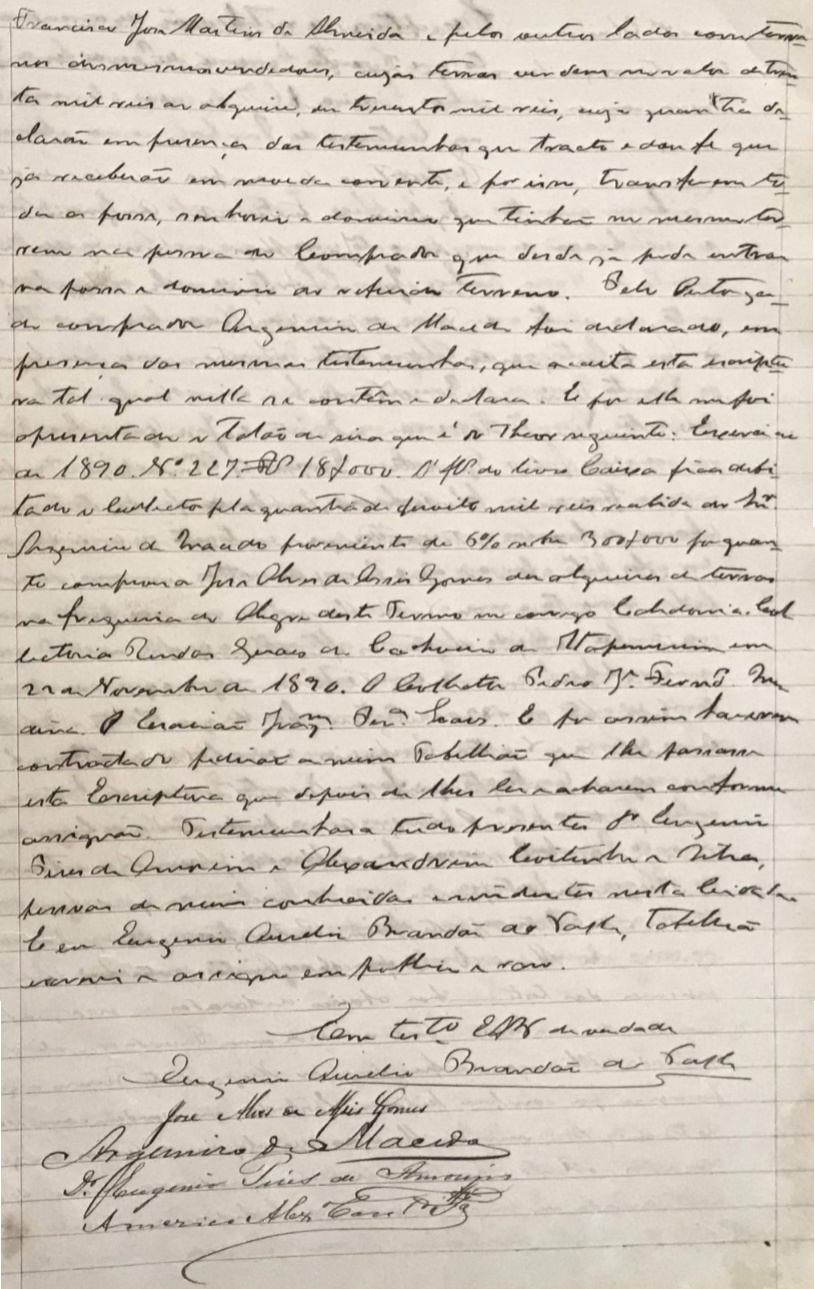 Francisco José Martins de Almeida e pelos outros lados com terre-
nos dos mesmos vendedores, cujas terras vendem no valor de trin-
ta mil reis ao alqueire, ou trezentos mil reis, cuja quantia de-
clarão em presença das testemunhas que tracto e dou fé que
já receberão em moeda corrente, e por isso, transferem to-
da a posse, senhorio e dominio que tinhão no mesmo ter-
reno na pessoa do Comprador que desde já pode entrar
na posse e dominio do referido terreno. Pelo Outorga-
do comprador Argemiro de Macedo foi declarado, em
presença das mesmas testemunhas, que acceita esta escriptu-
ra tal qual nella se contêm e declara. E por elle me foi
apresentado o Talão de sisa que é do Theor seguinte: Exercicio
de 1890. Nº 227 = RS 18$000. A fl do livro Caixa fica debi-
tado o Collector pela quantia de dezoito mil reis recebida do Snr.
Argemiro de Macedo proveniente de 6% sobre 300$000 por quan-
to comprou a José Alves de Assis Gomes dez alqueires de terras
na freguezia do Alegre deste Termo no corrego Caledonia. Col-
lectoria Rendas Geraes de Cachoeiro de Itapemirim em
22 de Novembro de 1890. O Collector Pedro Jº Fernd.
O Escrivão Joaqm. Perª Soares. E por assim haverem
contractado pedirão a mim Tabellião que lhe passasse
esta Escriptura que depois de lhes ler e acharem conforme
assignão. Testemunhas a tudo presentes Dr Eugenio
Pires de Amorim e Alexandrino,
pessoas de mim conhecidas e residentes nesta Cidade.
E eu Eugenio Aurelio Brandão do Valle, Tabellião
escrevi e assigno em publico e raso.
Em testº EABV de verdade
Eugenio Aurelio Brandão do Valle
José Alves de Assis Gomes
Argemiro de Macedo
Dr. Eugenio Pires de Amorim
Americo Alex